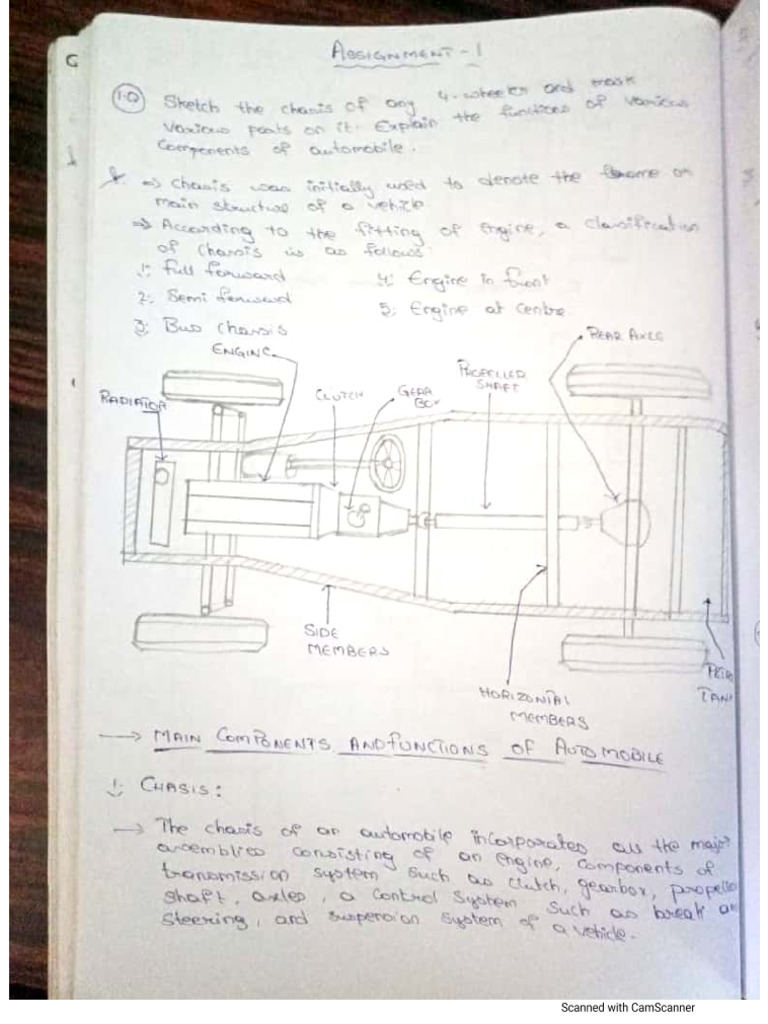 ASSIGNMENT - 1
1.Q Sketch the chasis of any 4-wheeler and mask
various parts on it. Explain the functions of various
Components of automobile.
A. => Chasis was initially used to denote the frame or
main structure of a vehicle
=> According to the fitting of engine, a classification
of chassis is as follows:
1: Full forward
4: Engine in front
2: Semi forward
5: Engine at centre.
3: Bus chassis
REAR AXLE
ENGINE
PROPELLER
SHAFT
CLUTCH
GEAR
BOX
RADIATOR
SIDE
MEMBERS
HORIZONTAL
MEMBERS
TANK
→ MAIN COMPONENTS AND FUNCTIONS OF AUTOMOBILE
1: CHASIS:
→ The chasis of an automobile incorporates all the major
assemblies consisting of an engine, components of
transmission system such as clutch, gearbox, propelle
shaft, axles, a control system such as break an
steering, and suspension system of a vehicle.
Scanned with CamScanner